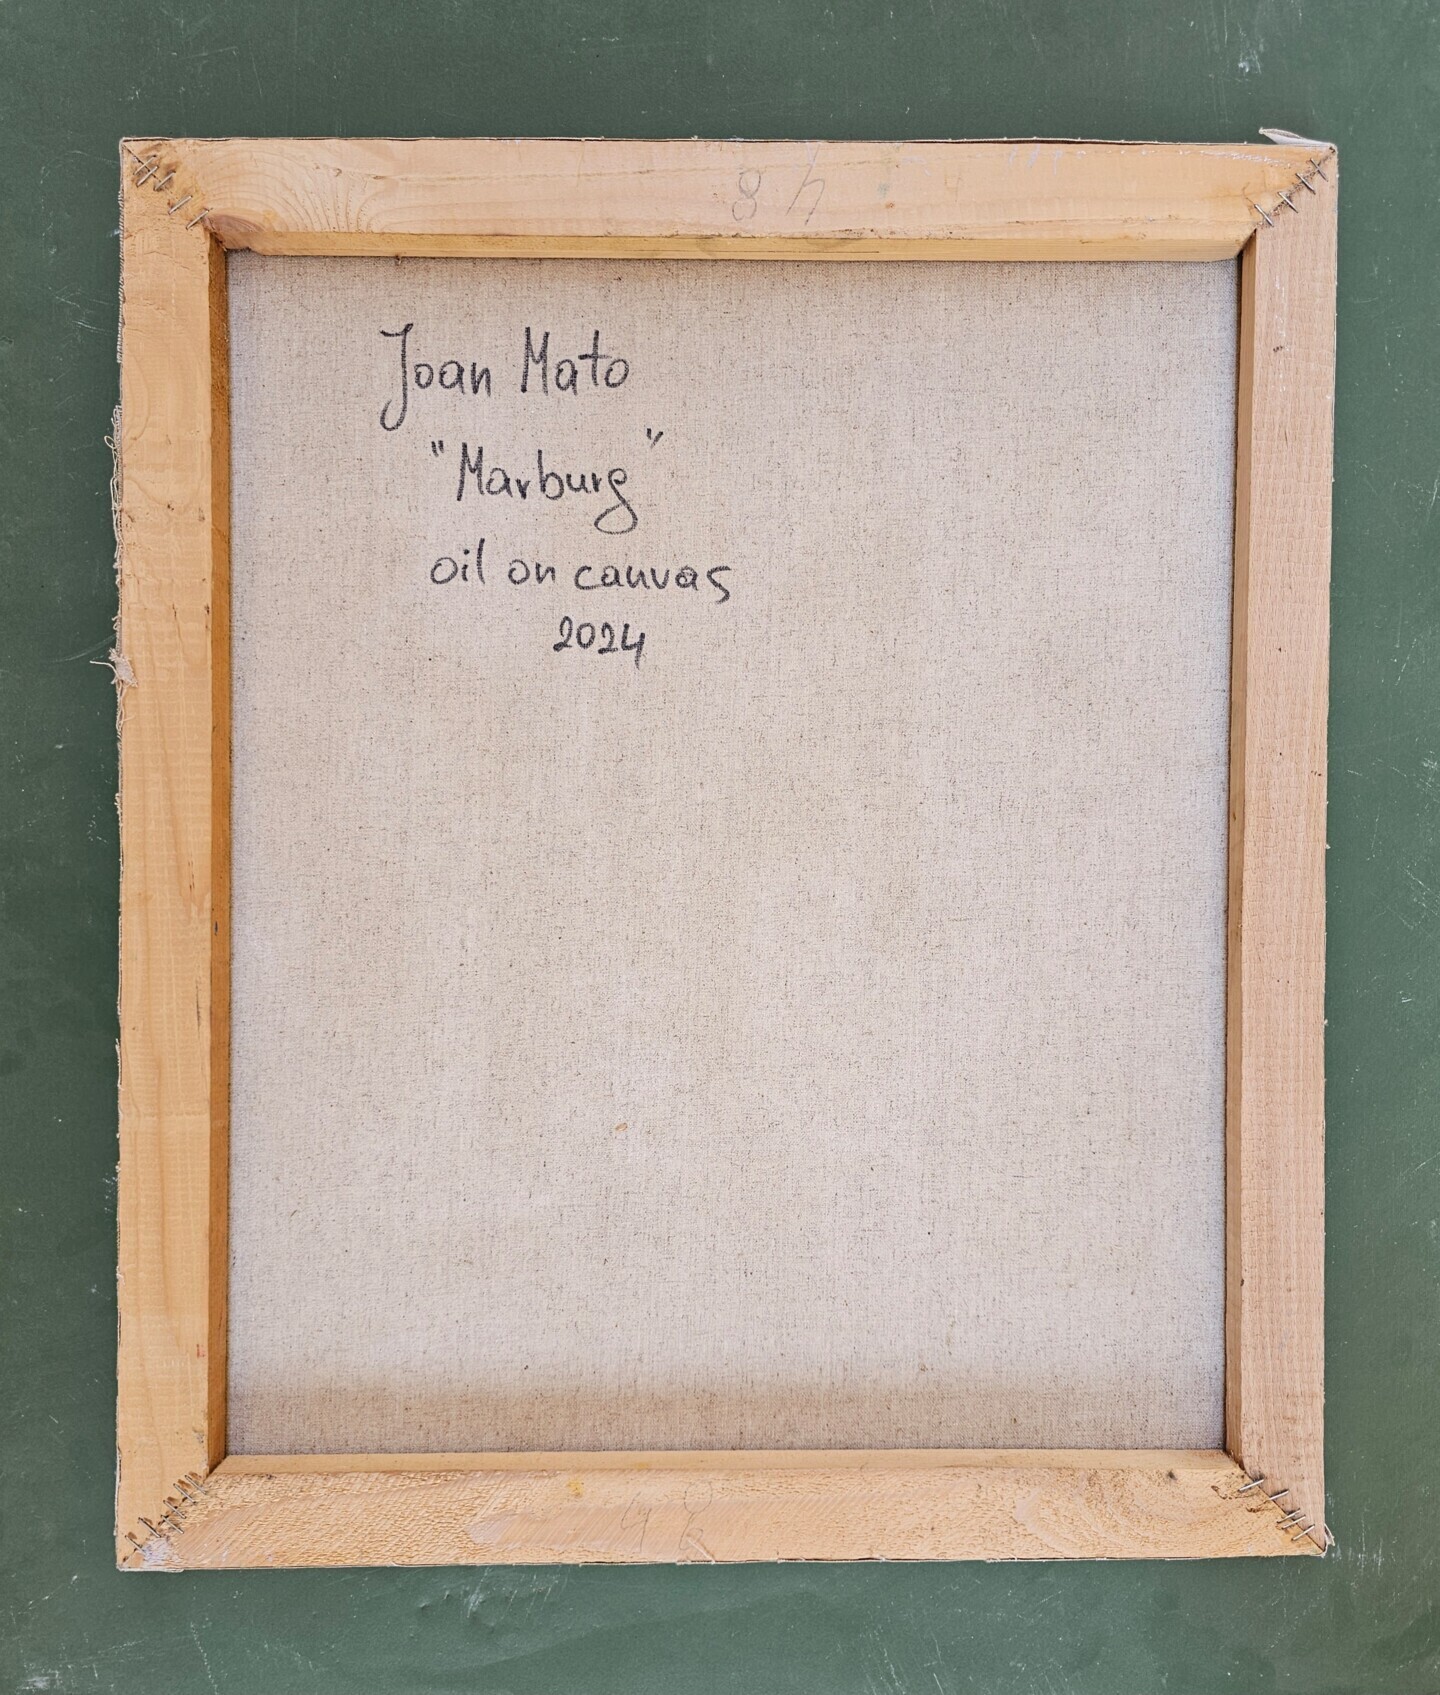 48
Joan Mato
"Marburg"
oil on canvas
2024
48